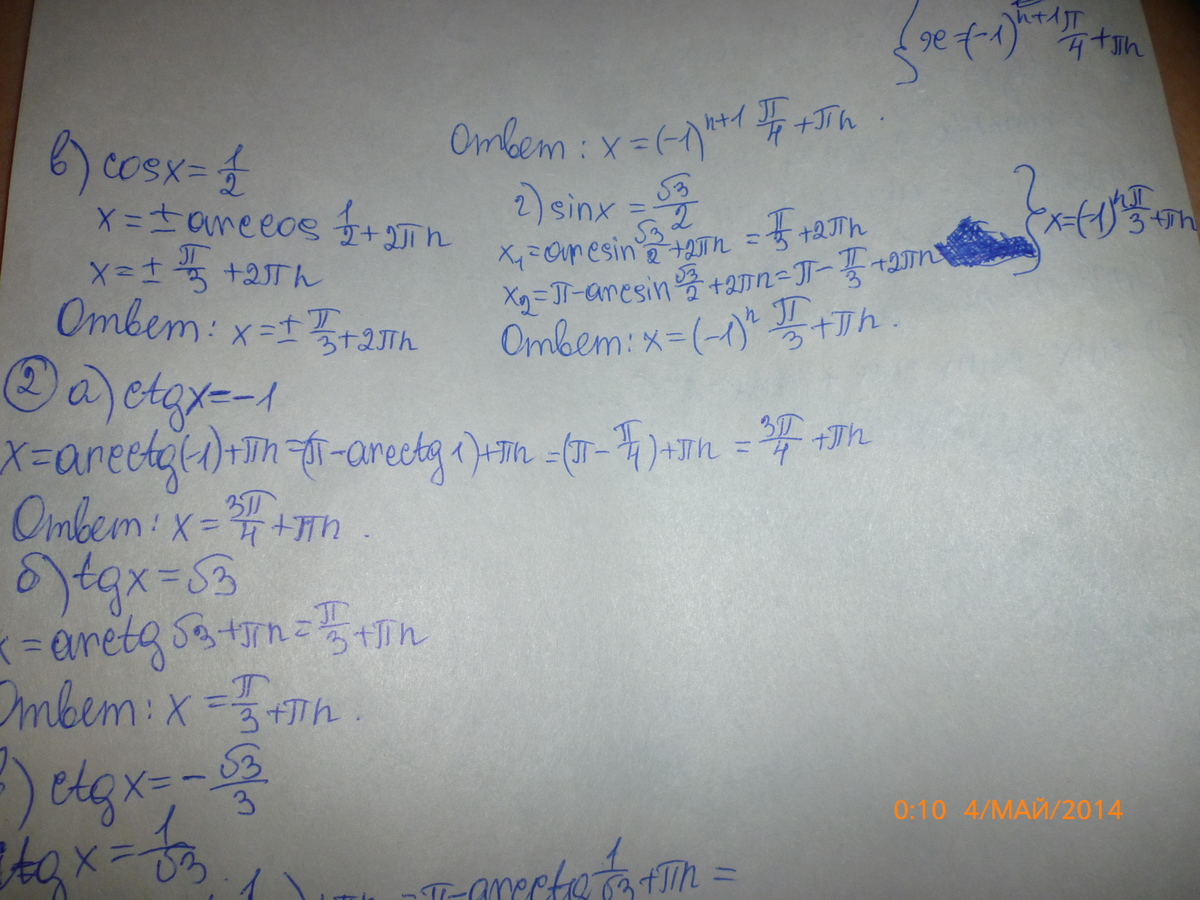 x=(-1)^{n+1} π/4 + πn
Ответ: x = (-1)^{n+1} π/4 + πn .
в) cosx = 1/2
x = ± arccos 1/2 + 2πn
x = ± π/3 + 2πn
Ответ: x = ± π/3 + 2πn
г) sinx = √3/2
x₁ = arcsin √3/2 + 2πn = π/3 + 2πn
x₂ = π - arcsin √3/2 + 2πn = π - π/3 + 2πn
} x = (-1)^n π/3 + πn
Ответ: x = (-1)^n π/3 + πn .
② а) ctgx = -1
x = arcctg(-1) + πn = (π - arcctg 1) + πn = (π - π/4) + πn = 3π/4 + πn
Ответ: x = 3π/4 + πn .
б) tgx = √3
x = arctg √3 + πn = π/3 + πn
Ответ: x = π/3 + πn .
в) ctgx = - √3/3
ctg x = 1/√3
= π - arcctg 1/√3 + πn =
0:10 4/МАЙ/2014